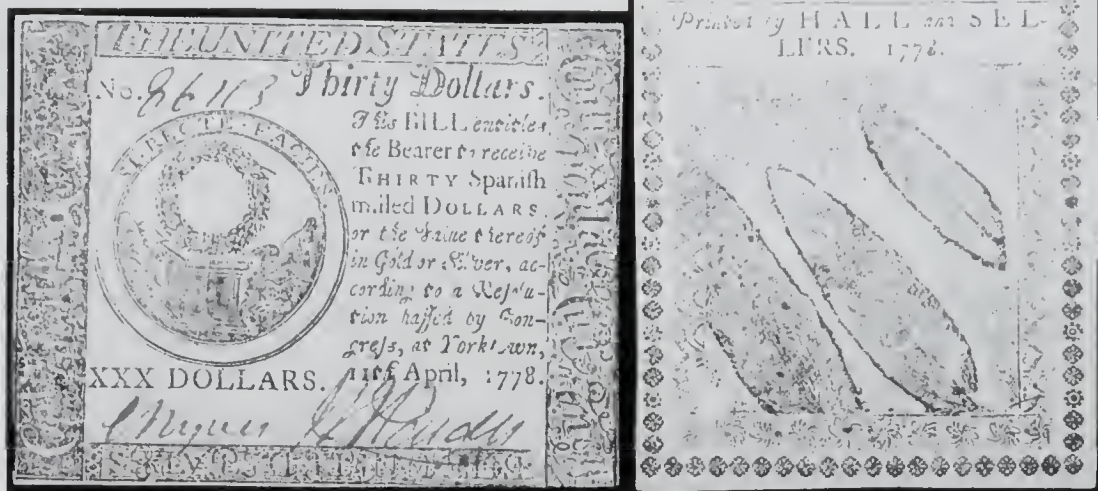 THE UNITED STATES
No. 86113 Thirty Dollars.
SI RECTE FACIES
This BILL entitles
the Bearer to receive
THIRTY Spaniſh
milled DOLLARS,
or the Value thereof
in Gold or Silver, ac-
cording to a Reſolu-
tion paſſed by Con-
greſs, at Yorktown,
11th April, 1778.
XXX DOLLARS.
Printed by HALL and SEL-
LERS. 1778.